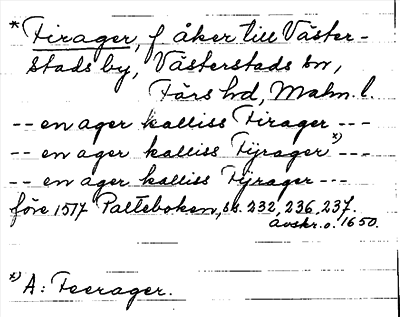 *Firager, f. åker till Väster-
stads by, Västerstads sn,
Färs hd, Malm. l.
-- en ager kalliss Firager ---
-- en ager kalliss Fijrager *) ---
-- en ager kalliss Fijrager ---
före 1517 Palteboken, ss. 232, 236, 237.
avskr. o. 1650.
*) A: Feerager.